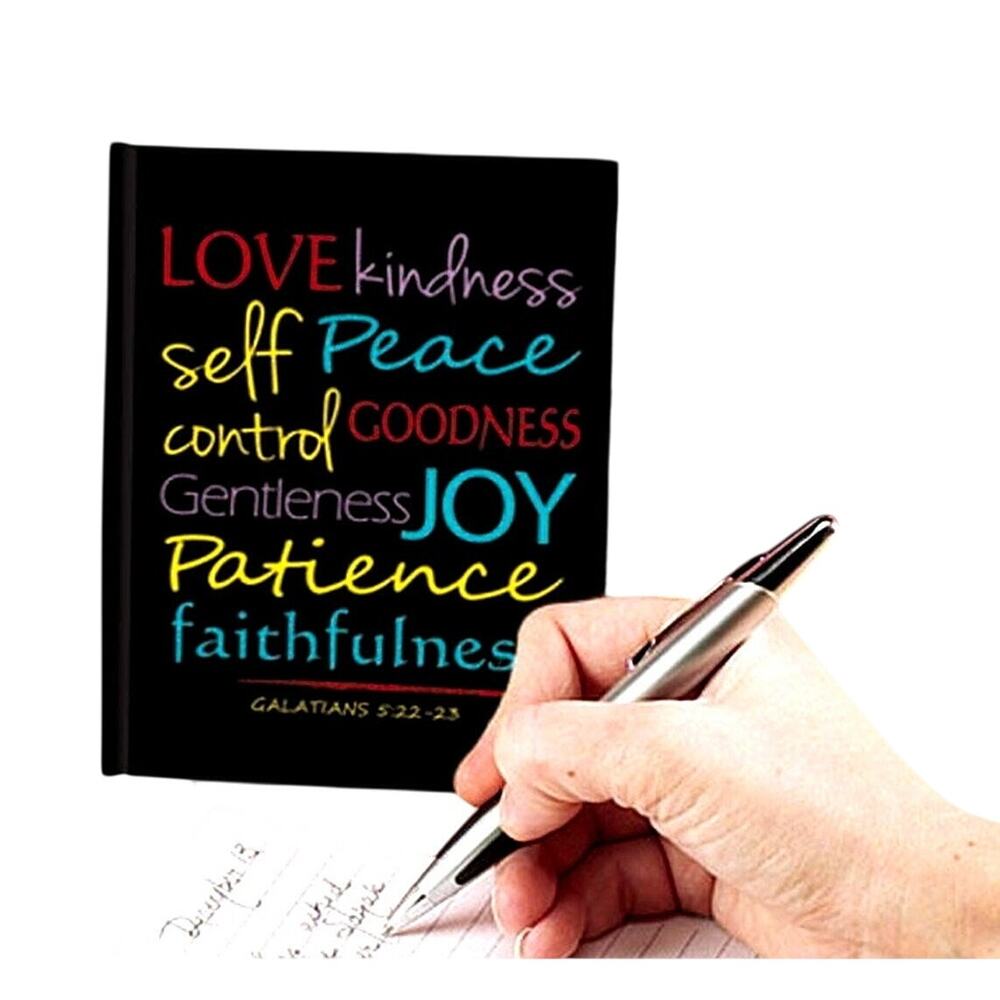 LOVE kindness
self Peace
control GOODNESS
Gentleness JOY
Patience
faithfulnes
GALATIANS 5:22-23